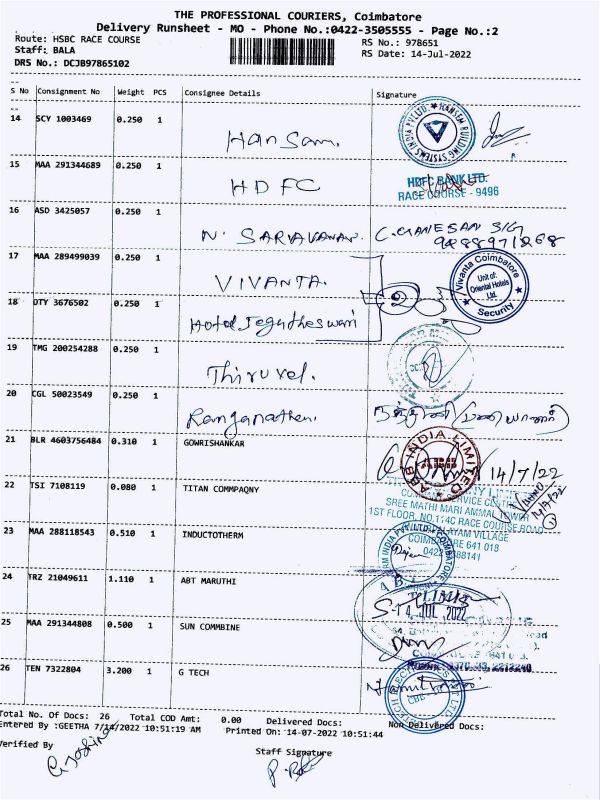 THE PROFESSIONAL COURIERS, Coimbatore
Delivery Runsheet - MO - Phone No.:0422-3505555 - Page No.:2
Route: HSBC RACE COURSE
RS No.: 978651
Staff: BALA
RS Date: 14-Jul-2022
DRS No.: DCJB97865102
S No Consignment No Weight PCS Consignee Details Signature
14 SCY 1003469 0.250 1 Hansam.
HANSEM BUILDING SYSTEMS INDIA PVT.LTD.
15 MAA 291344689 0.250 1 HDFC
HDFC BANK LTD.
RACE COURSE - 9496
16 ASD 3425057 0.250 1 N. SARVAVANAN. C.GANESAN SIG
9888971268
17 MAA 289499039 0.250 1 VIVANTA.
Vivanta Coimbatore
Unit of:
Oriental Hotels
Ltd.
Security
18 DTY 3676502 0.250 1 Hotel Jegatheswari
19 TMG 200254288 0.250 1 Thiruvel.
20 CGL 50023549 0.250 1 Ranganathan.
21 BLR 4603756484 0.310 1 GOWRISHANKAR
ABB INDIA LIMITED
14/7/22
22 TSI 7108119 0.080 1 TITAN COMMPAQNY
SREE MATHI MARI AMMAL TOWER
1ST FLOOR, NO.114C RACE COURSE ROAD
VILLAGE
COIMBATORE 641 018
23 MAA 288118543 0.510 1 INDUCTOTHERM
24 TRZ 21049611 1.110 1 ABT MARUTHI
14 JUL 2022
25 MAA 291344808 0.500 1 SUN COMMBINE
26 TEN 7322804 3.200 1 G TECH
Total No. Of Docs: 26 Total COD Amt: 0.00 Delivered Docs: Non Delivered Docs:
Entered By :GEETHA 7/14/2022 10:51:19 AM Printed On: 14-07-2022 10:51:44
Verified By
Staff Signature